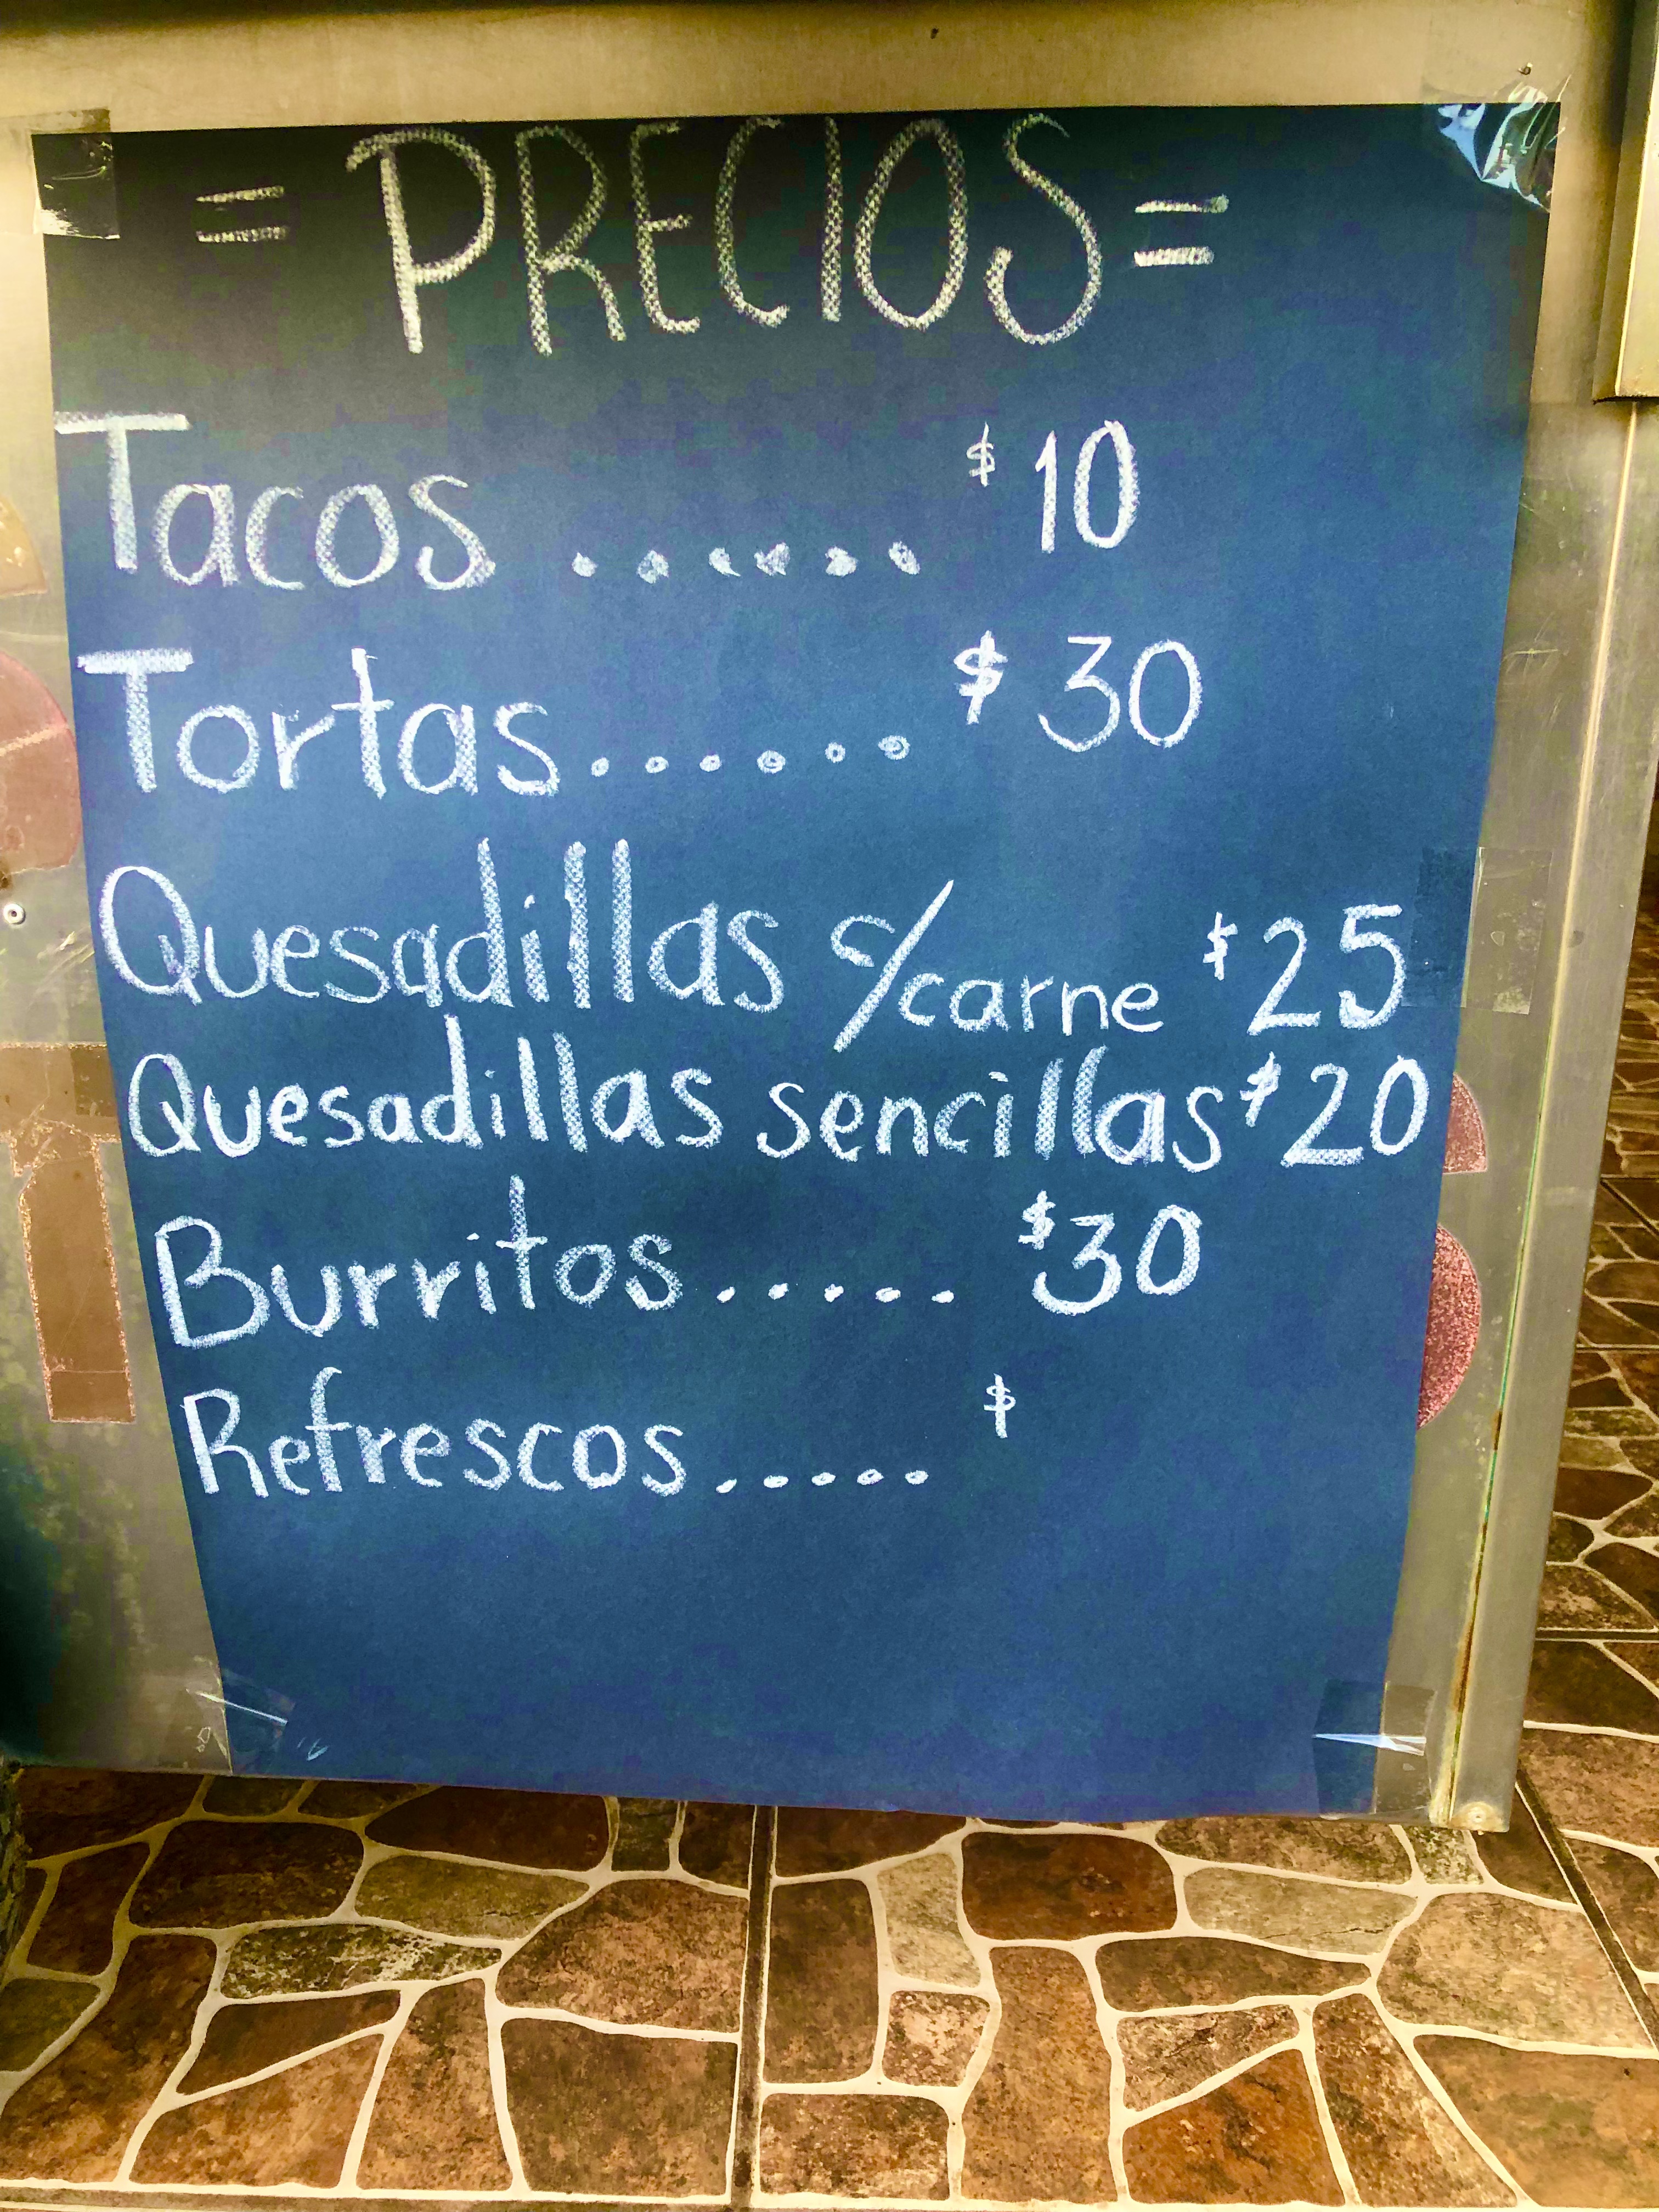 = PRECIOS =
Tacos ...... $10
Tortas...... $30
Quesadillas c/carne $25
Quesadillas sencillas $20
Burritos..... $30
Refrescos..... $